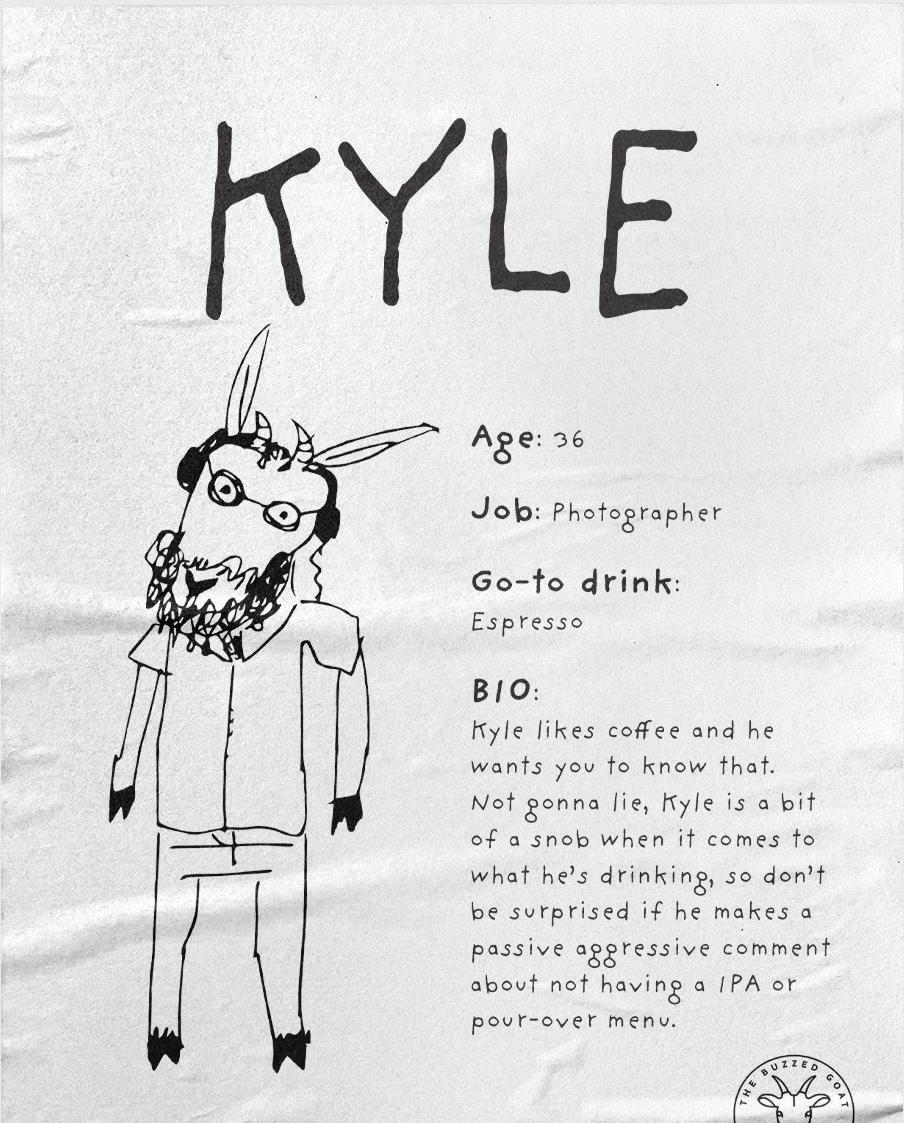 KYLE
Age: 36
Job: Photographer
Go-to drink:
Espresso
BIO:
Kyle likes coffee and he
wants you to know that.
Not gonna lie, Kyle is a bit
of a snob when it comes to
what he's drinking, so don't
be surprised if he makes a
passive aggressive comment
about not having a IPA or
pour-over menu.
THE BUZZED GOAT